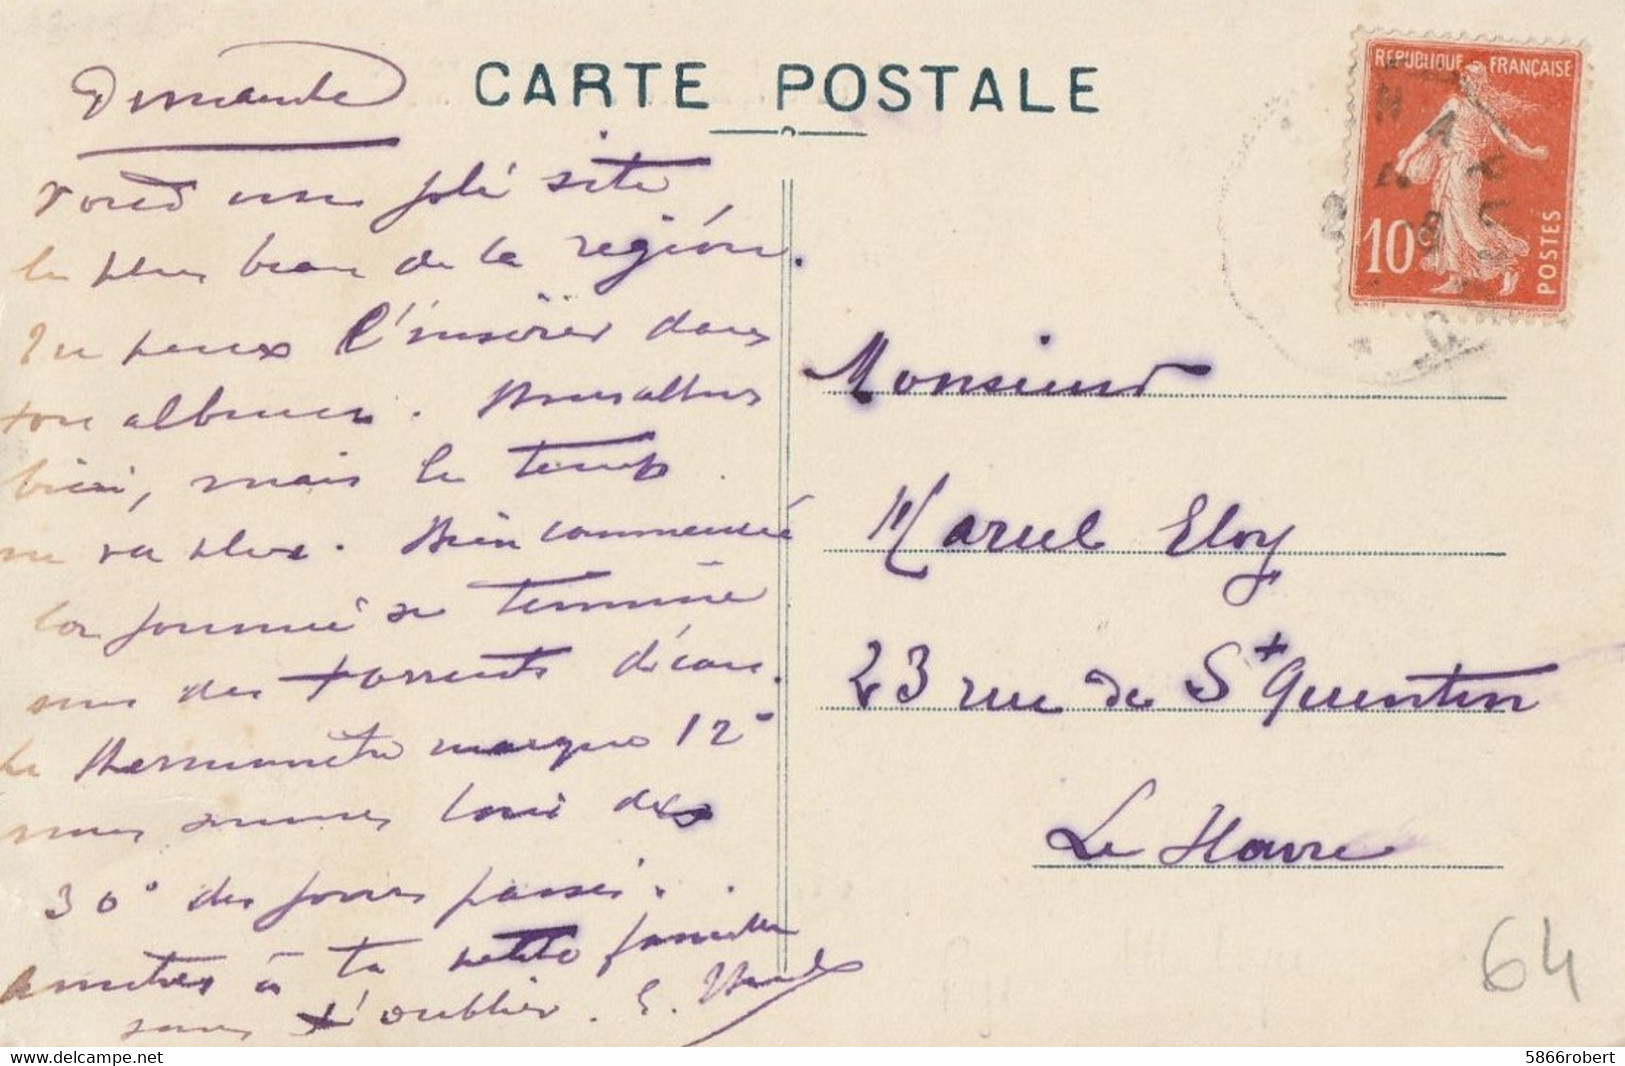 CARTE POSTALE
Dimanche
voici un joli site,
le plus beau de la région.
Tu peux l'insérer dans
ton album. Nous allons
bien, mais le temps
ne va plus. Bien commencée
la journée se termine
sous des torrents d'eau.
Le thermomètre marque 12°
nous sommes loin des
30° des jours passés.
Amitiés à ta petite famille
sans t'oublier. E.
REPUBLIQUE FRANÇAISE
10
POSTES
Monsieur
Marcel Eloy
23 rue de St Quentin
Le Havre
64
www.delcampe.net
5866robert